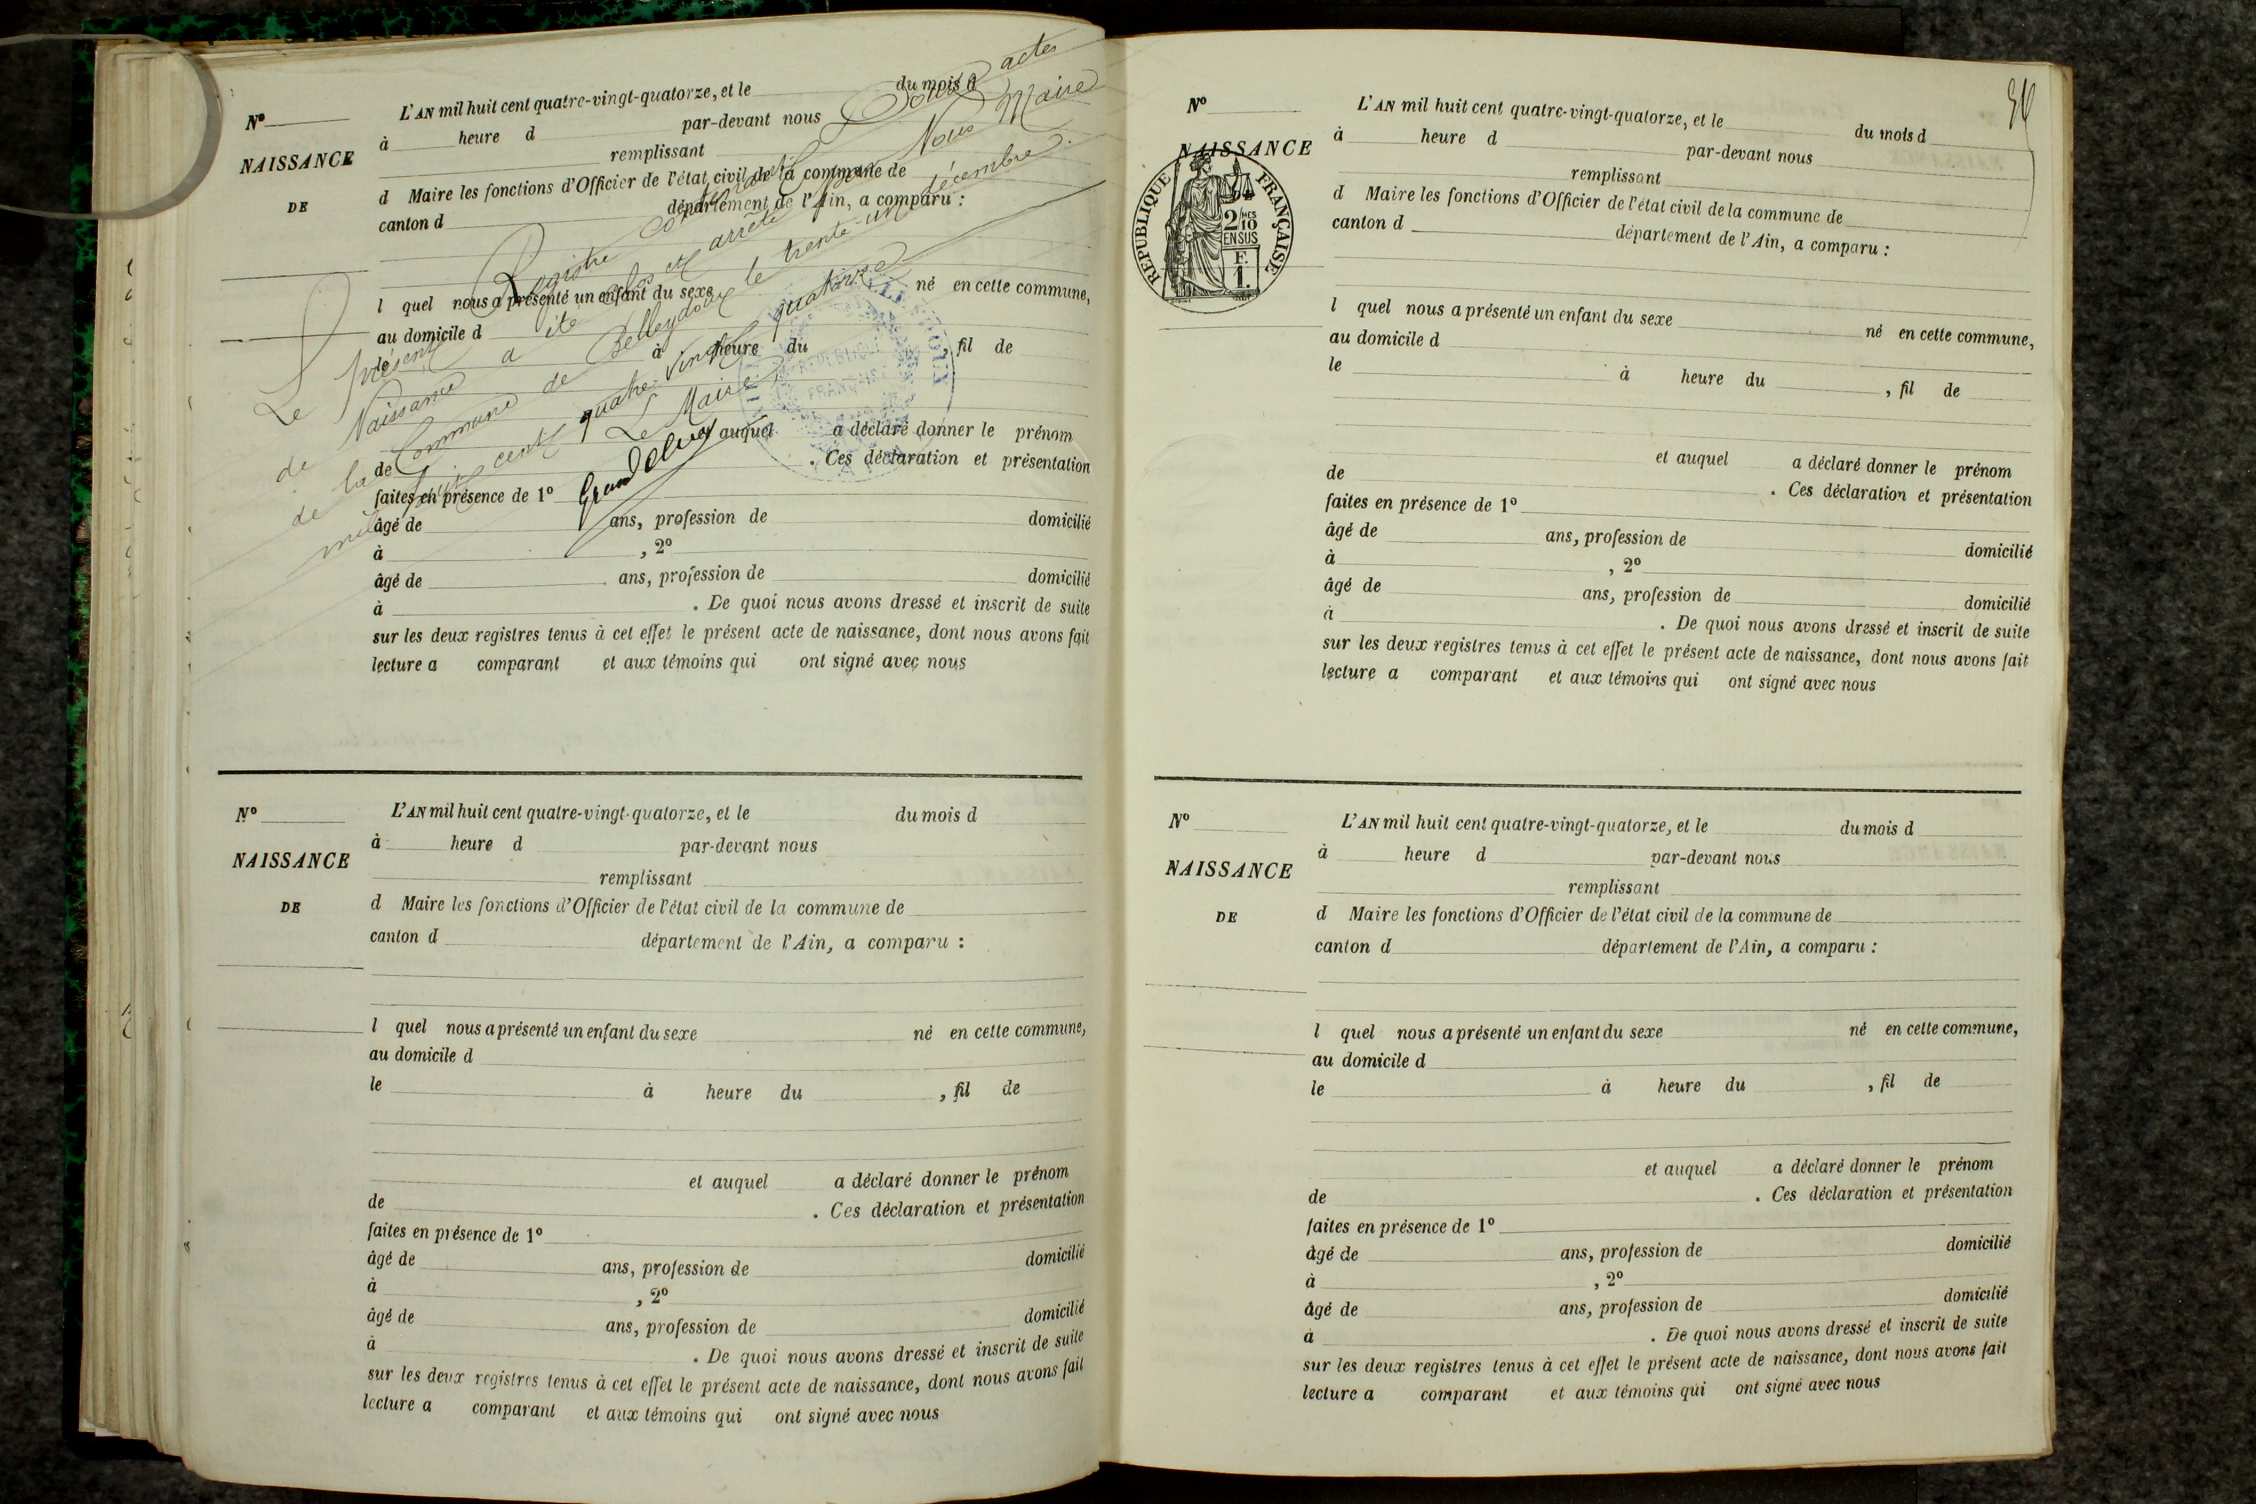 N°
NAISSANCE
DE
L'AN mil huit cent quatre-vingt-quatorze, et le du mois d
à heure d par-devant nous
remplissant
d Maire les fonctions d'Officier de l'état civil de la commune de
canton d département de l'Ain, a comparu :
l quel nous a présenté un enfant du sexe né en cette commune,
au domicile d
le à heure du , fil de
auquel a déclaré donner le prénom
de . Ces déclaration et présentation
faites en présence de 1°
âgé de ans, profession de domicilié
à , 2°
âgé de ans, profession de domicilié
à . De quoi nous avons dressé et inscrit de suite
sur les deux registres tenus à cet effet le présent acte de naissance, dont nous avons fait
lecture a comparant et aux témoins qui ont signé avec nous
Le présent Registre contenant actes
de Naissance a été clos et arrêté par Nous Maire
de la Commune de Belleydoux le trente-un décembre.
mil huit cent quatre vingt quatorze
Le Maire
RÉPUBLIQUE
FRANÇAISE
N°
NAISSANCE
DE
L'AN mil huit cent quatre-vingt-quatorze, et le du mois d
à heure d par-devant nous
remplissant
d Maire les fonctions d'Officier de l'état civil de la commune de
canton d département de l'Ain, a comparu :
l quel nous a présenté un enfant du sexe né en cette commune,
au domicile d
le à heure du , fil de
et auquel a déclaré donner le prénom
de . Ces déclaration et présentation
faites en présence de 1°
âgé de ans, profession de domicilié
à , 2°
âgé de ans, profession de domicilié
à . De quoi nous avons dressé et inscrit de suite
sur les deux registres tenus à cet effet le présent acte de naissance, dont nous avons fait
lecture a comparant et aux témoins qui ont signé avec nous
N°
NAISSANCE
RÉPUBLIQUE FRANÇAISE
2/10 MES
EN SUS
F.
1.
L'AN mil huit cent quatre-vingt-quatorze, et le du mois d
à heure d par-devant nous
remplissant
d Maire les fonctions d'Officier de l'état civil de la commune de
canton d département de l'Ain, a comparu :
l quel nous a présenté un enfant du sexe né en cette commune,
au domicile d
le à heure du , fil de
et auquel a déclaré donner le prénom
de . Ces déclaration et présentation
faites en présence de 1°
âgé de ans, profession de domicilié
à , 2°
âgé de ans, profession de domicilié
à . De quoi nous avons dressé et inscrit de suite
sur les deux registres tenus à cet effet le présent acte de naissance, dont nous avons fait
lecture a comparant et aux témoins qui ont signé avec nous
N°
NAISSANCE
DE
L'AN mil huit cent quatre-vingt-quatorze, et le du mois d
à heure d par-devant nous
remplissant
d Maire les fonctions d'Officier de l'état civil de la commune de
canton d département de l'Ain, a comparu :
l quel nous a présenté un enfant du sexe né en cette commune,
au domicile d
le à heure du , fil de
et auquel a déclaré donner le prénom
de . Ces déclaration et présentation
faites en présence de 1°
âgé de ans, profession de domicilié
à , 2°
âgé de ans, profession de domicilié
à . De quoi nous avons dressé et inscrit de suite
sur les deux registres tenus à cet effet le présent acte de naissance, dont nous avons fait
lecture a comparant et aux témoins qui ont signé avec nous